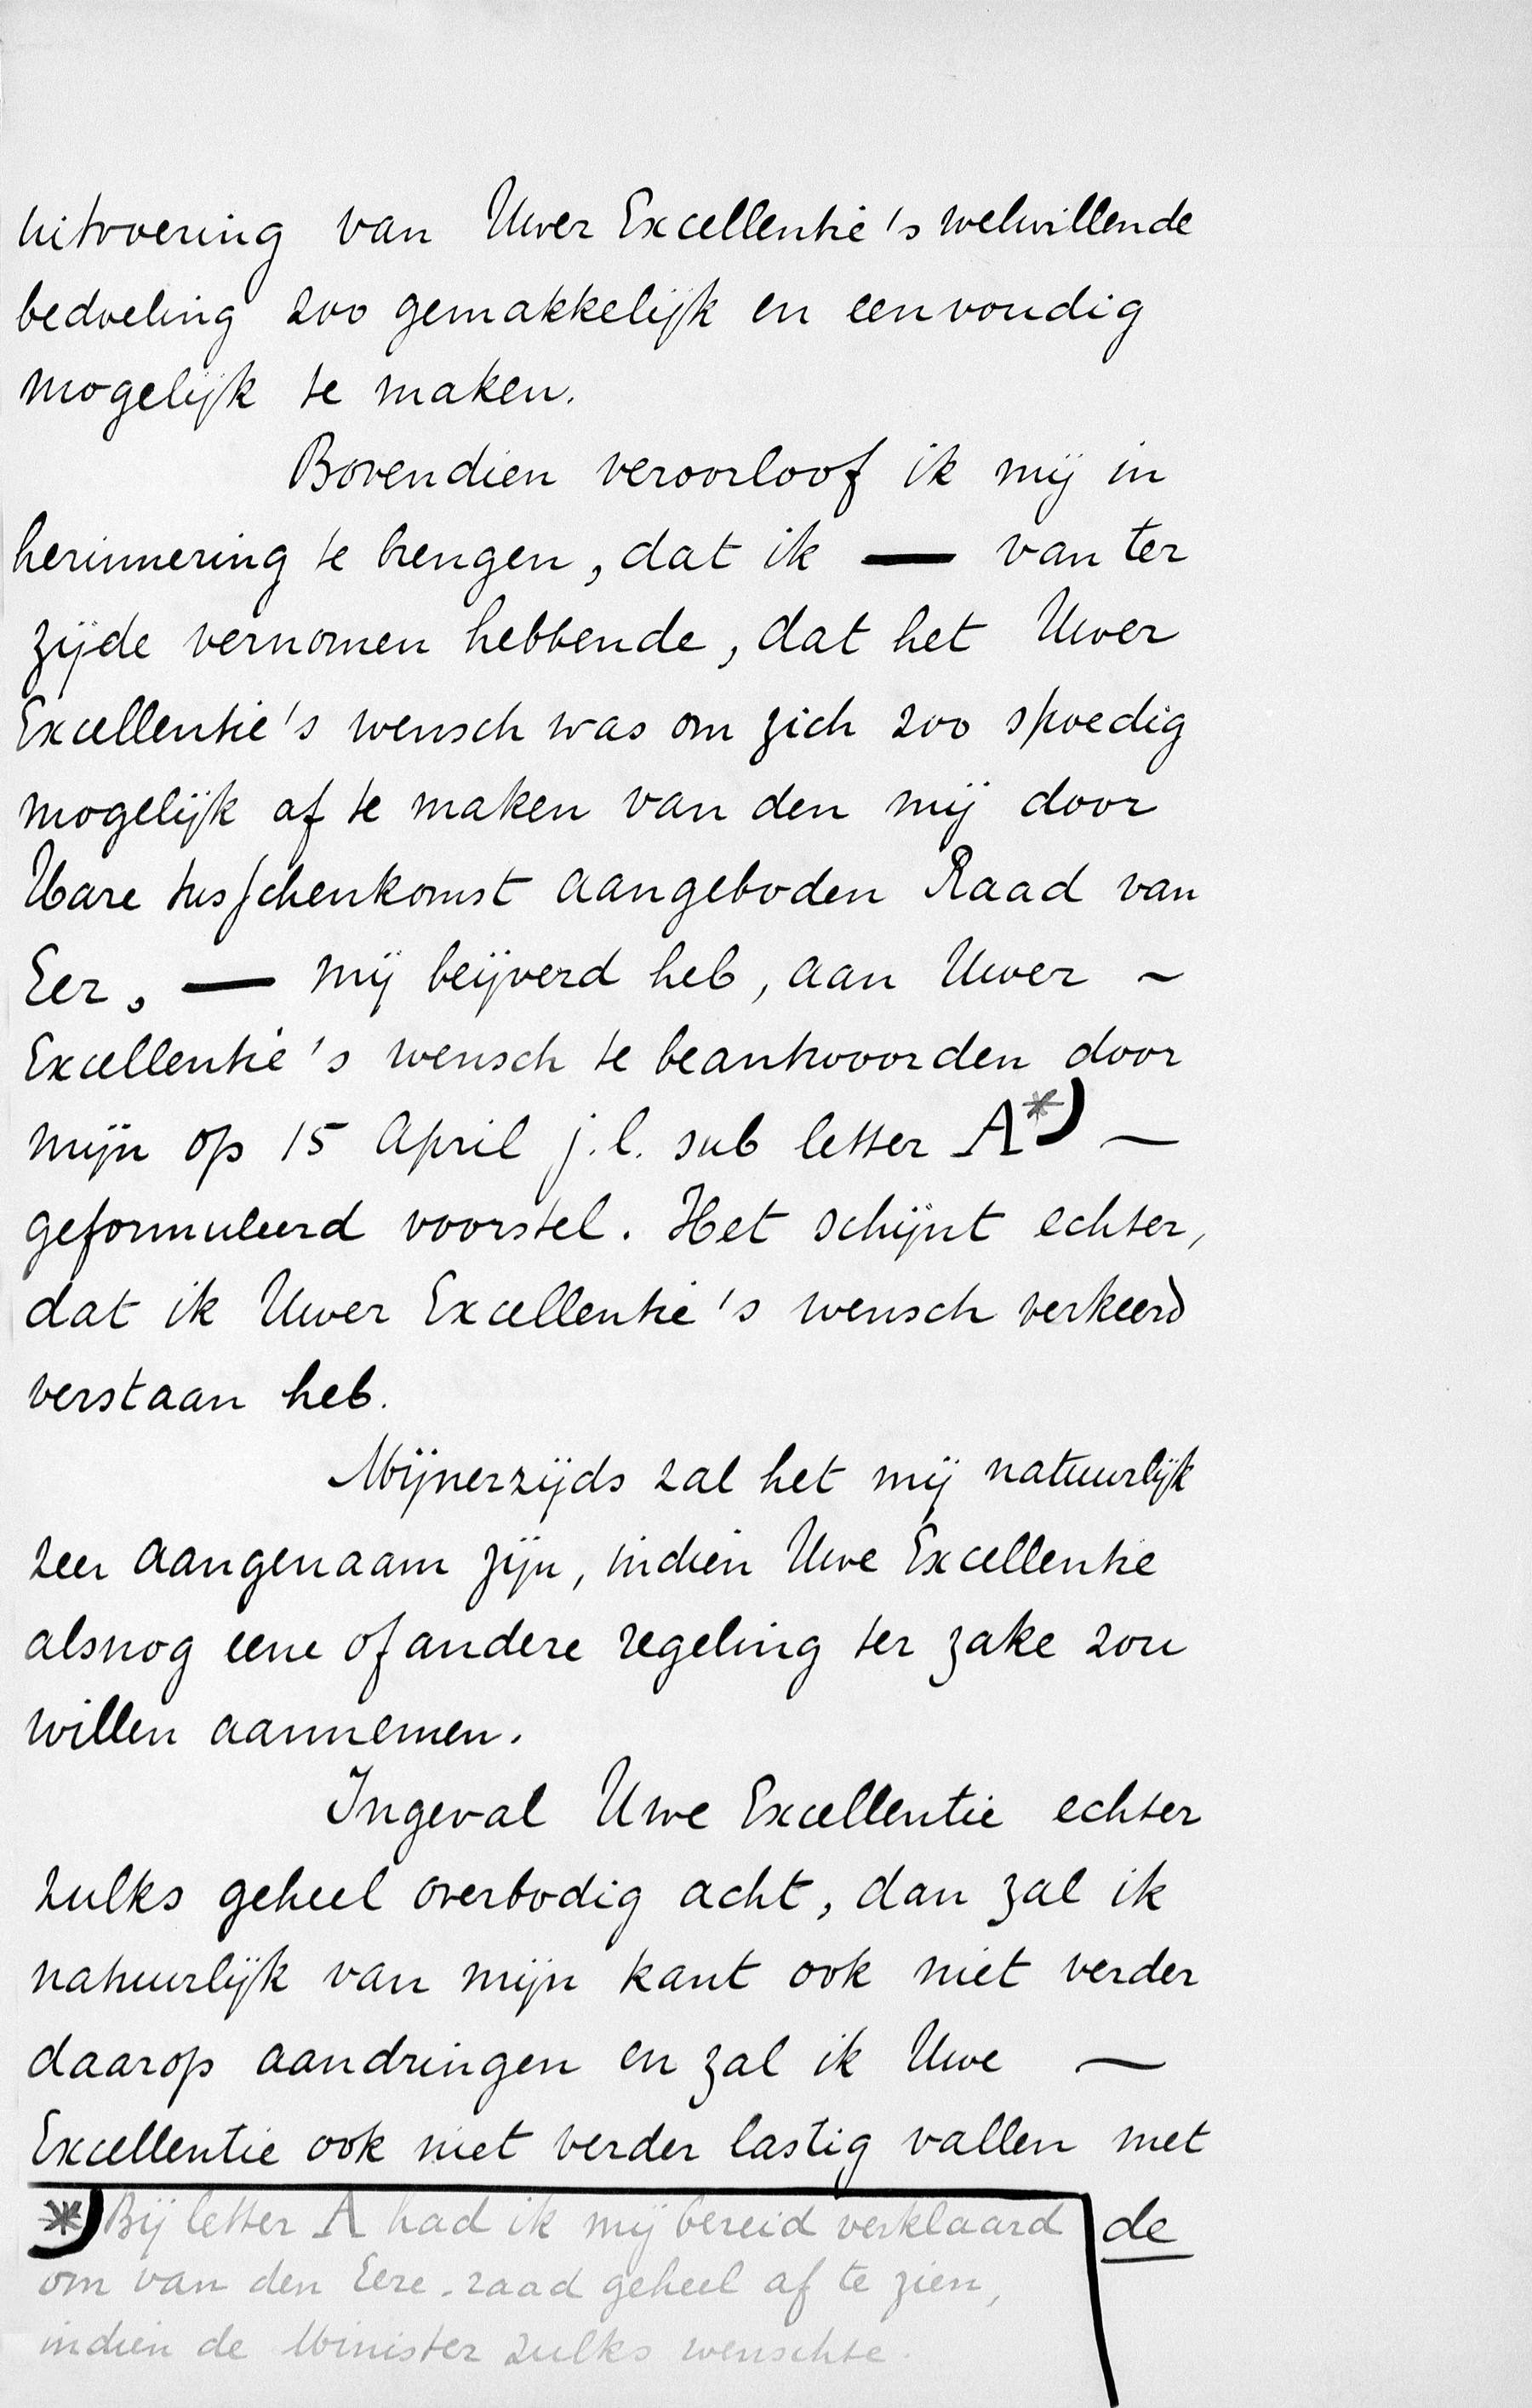 uitvoering van Uwer Excellentie's welwillende
bedoeling zoo gemakkelijk en eenvoudig
mogelijk te maken.
Bovendien veroorloof ik mij in
herinnering te brengen, dat ik — van ter
zijde vernomen hebbende, dat het Uwer
Excellentie's wensch was om zich zoo spoedig
mogelijk af te maken van den mij door
Hare tusschenkomst aangeboden Raad van
Eer, — mij beijverd heb, aan Uwer ~
Excellentie's wensch te beantwoorden door
mijn op 15 April j.l. sub letter A*) —
geformuleerd voorstel. Het schijnt echter,
dat ik Uwer Excellentie's wensch verkeerd
verstaan heb.
Mijnerzijds zal het mij natuurlijk
zeer aangenaam zijn, indien Uwe Excellentie
alsnog eene of andere regeling ter zake zou
willen aannemen.
Ingeval Uwe Excellentie echter
zulks geheel overbodig acht, dan zal ik
natuurlijk van mijn kant ook niet verder
daarop aandringen en zal ik Uwe —
Excellentie ook niet verder lastig vallen met
de
*) Bij letter A had ik mij bereid verklaard
om van den Eere-raad geheel af te zien,
indien de Minister zulks wenschte.